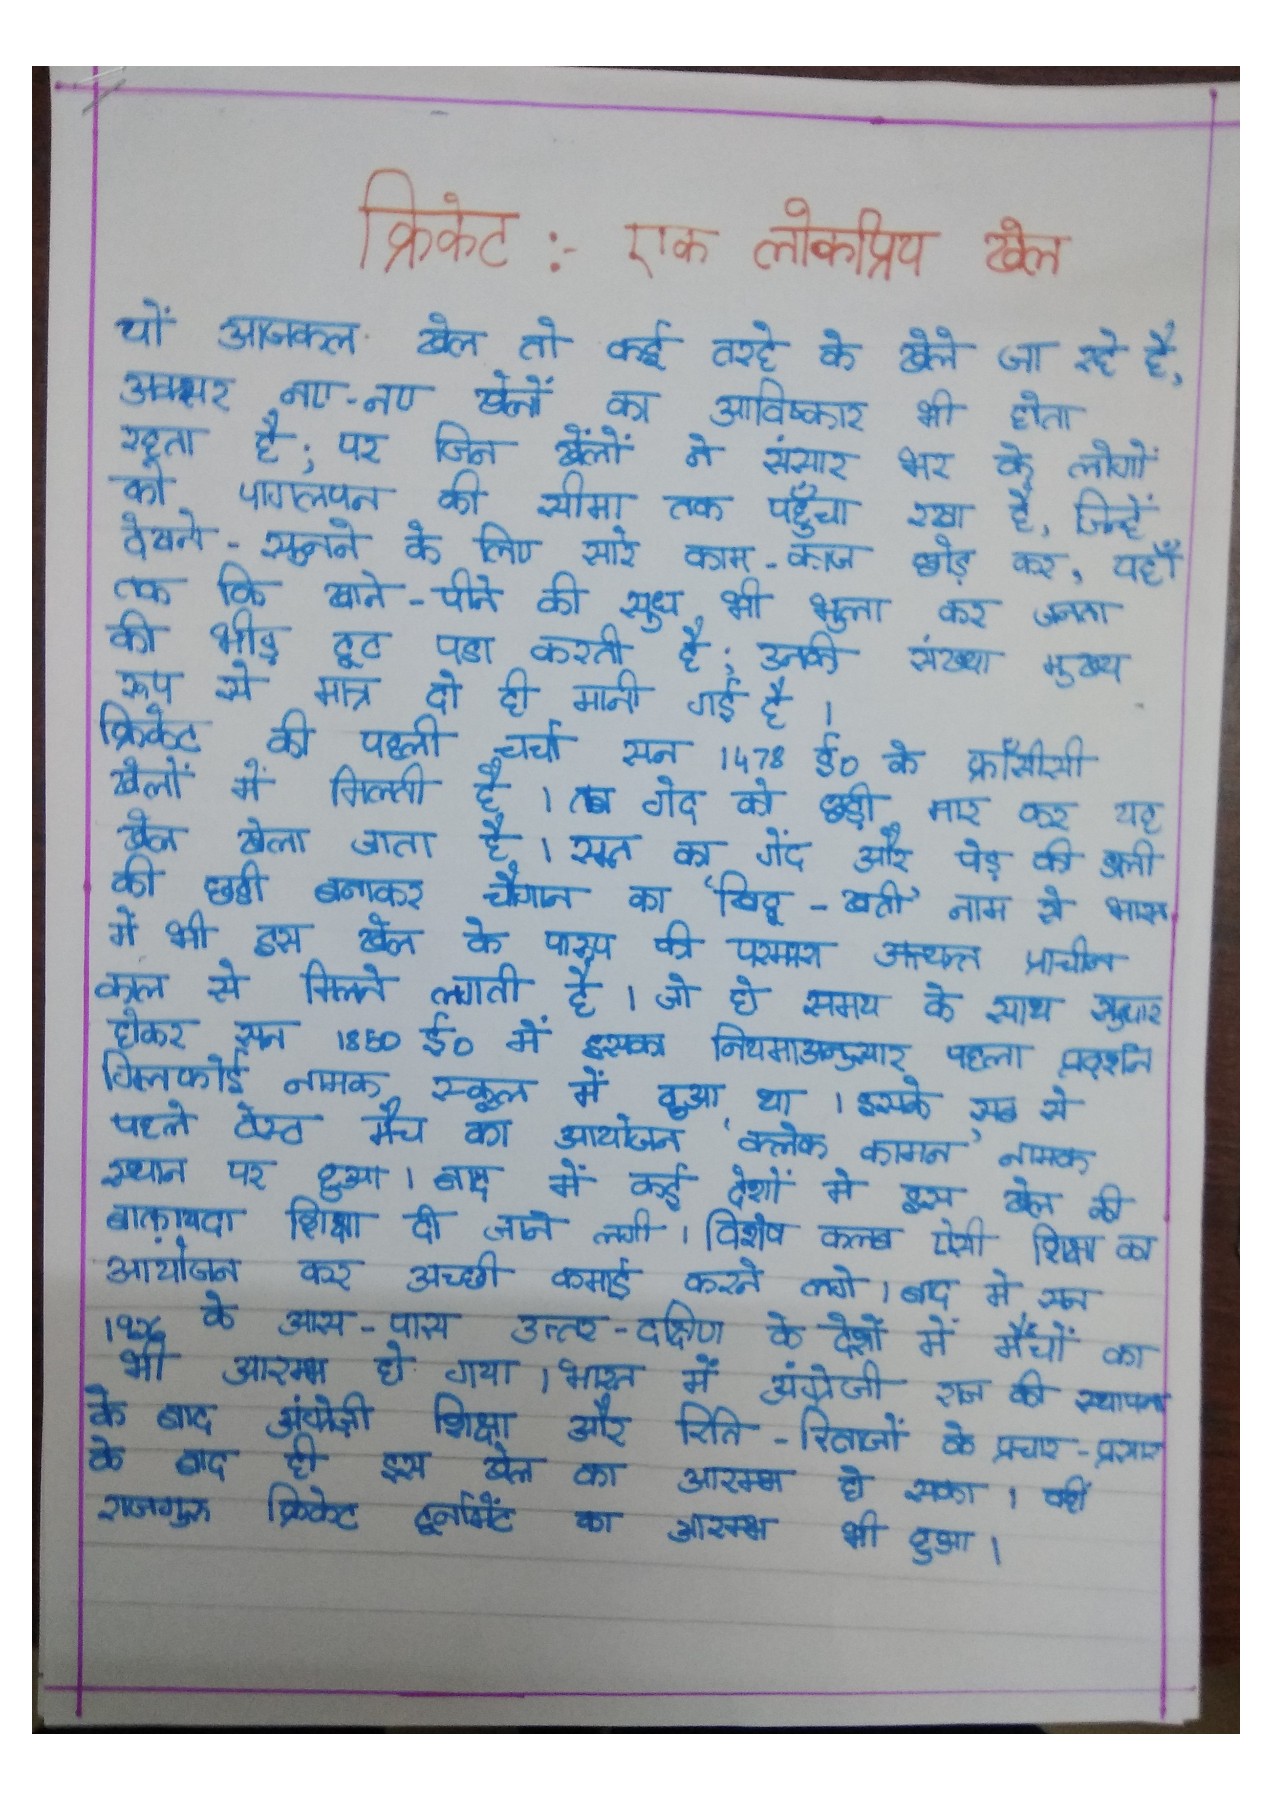 क्रिकेट :- एक लोकप्रिय खेल
यों आजकल खेल तो कई तरहे के खेले जा रहे है,
अक्सर नए-नए खेलों का आविष्कार भी होता
रहता है; पर जिन खेंलों ने संसार भर के लोगों
को पागलपन की सीमा तक पहुँचा रखा है, जिन्हें
देखने-सुनने के लिए सारे काम-काज छोड़ कर, यहाँ
तक कि खाने-पीने की सुध भी भुला कर जनता
की भीड़ टूट पडा करती है; उनकी संख्या मुख्य
रूप से मात्र दो ही मानी गई है ।
क्रिकेट की पहली चर्चा सन 1478 ई० के फ्राँसीसी
खेलों में मिलती है । तब गेंद को छड़ी मार कर यह
खेल खेला जाता है । सूत का गेंद और पेड़ की डली
की छड़ी बनाकर चौगान का 'खिद्दू-खत्ती' नाम से भारत
में भी इस खेल के पारूप की परम्परा अत्यन्त प्राचीन
काल से मिलने लगती है । जो हो समय के साथ सुधार
होकर सन 1850 ई० में इसका नियमाअनुसार पहला प्रदर्शन
गिलफोर्ड नामक स्कूल में हुआ था । इसके सब से
पहले टेस्ट मैच का आयोजन 'क्लेक कामन' नामक
स्थान पर हुआ । बाद में कई देशों मे इस खेल की
बाक़ायदा शिक्षा दी जाने लगी । विशेष कल्ब ऐसी शिक्षा का
आयोजन कर अच्छी कमाई करने लगे । बाद में सन
के आस-पास उत्तर-दक्षिण के देशों में मैंचों का
भी आरम्भ हो गया । भारत में अंग्रेजी राज की स्थापना
के बाद अंग्रेज़ी शिक्षा और रिति-रिवाजों के प्रचार-प्रसार
के बाद ही इस खेल का आरम्भ हो सका । वहीं
राजगुरु क्रिकेट टूर्नामेंट का आरम्भ भी हुआ ।